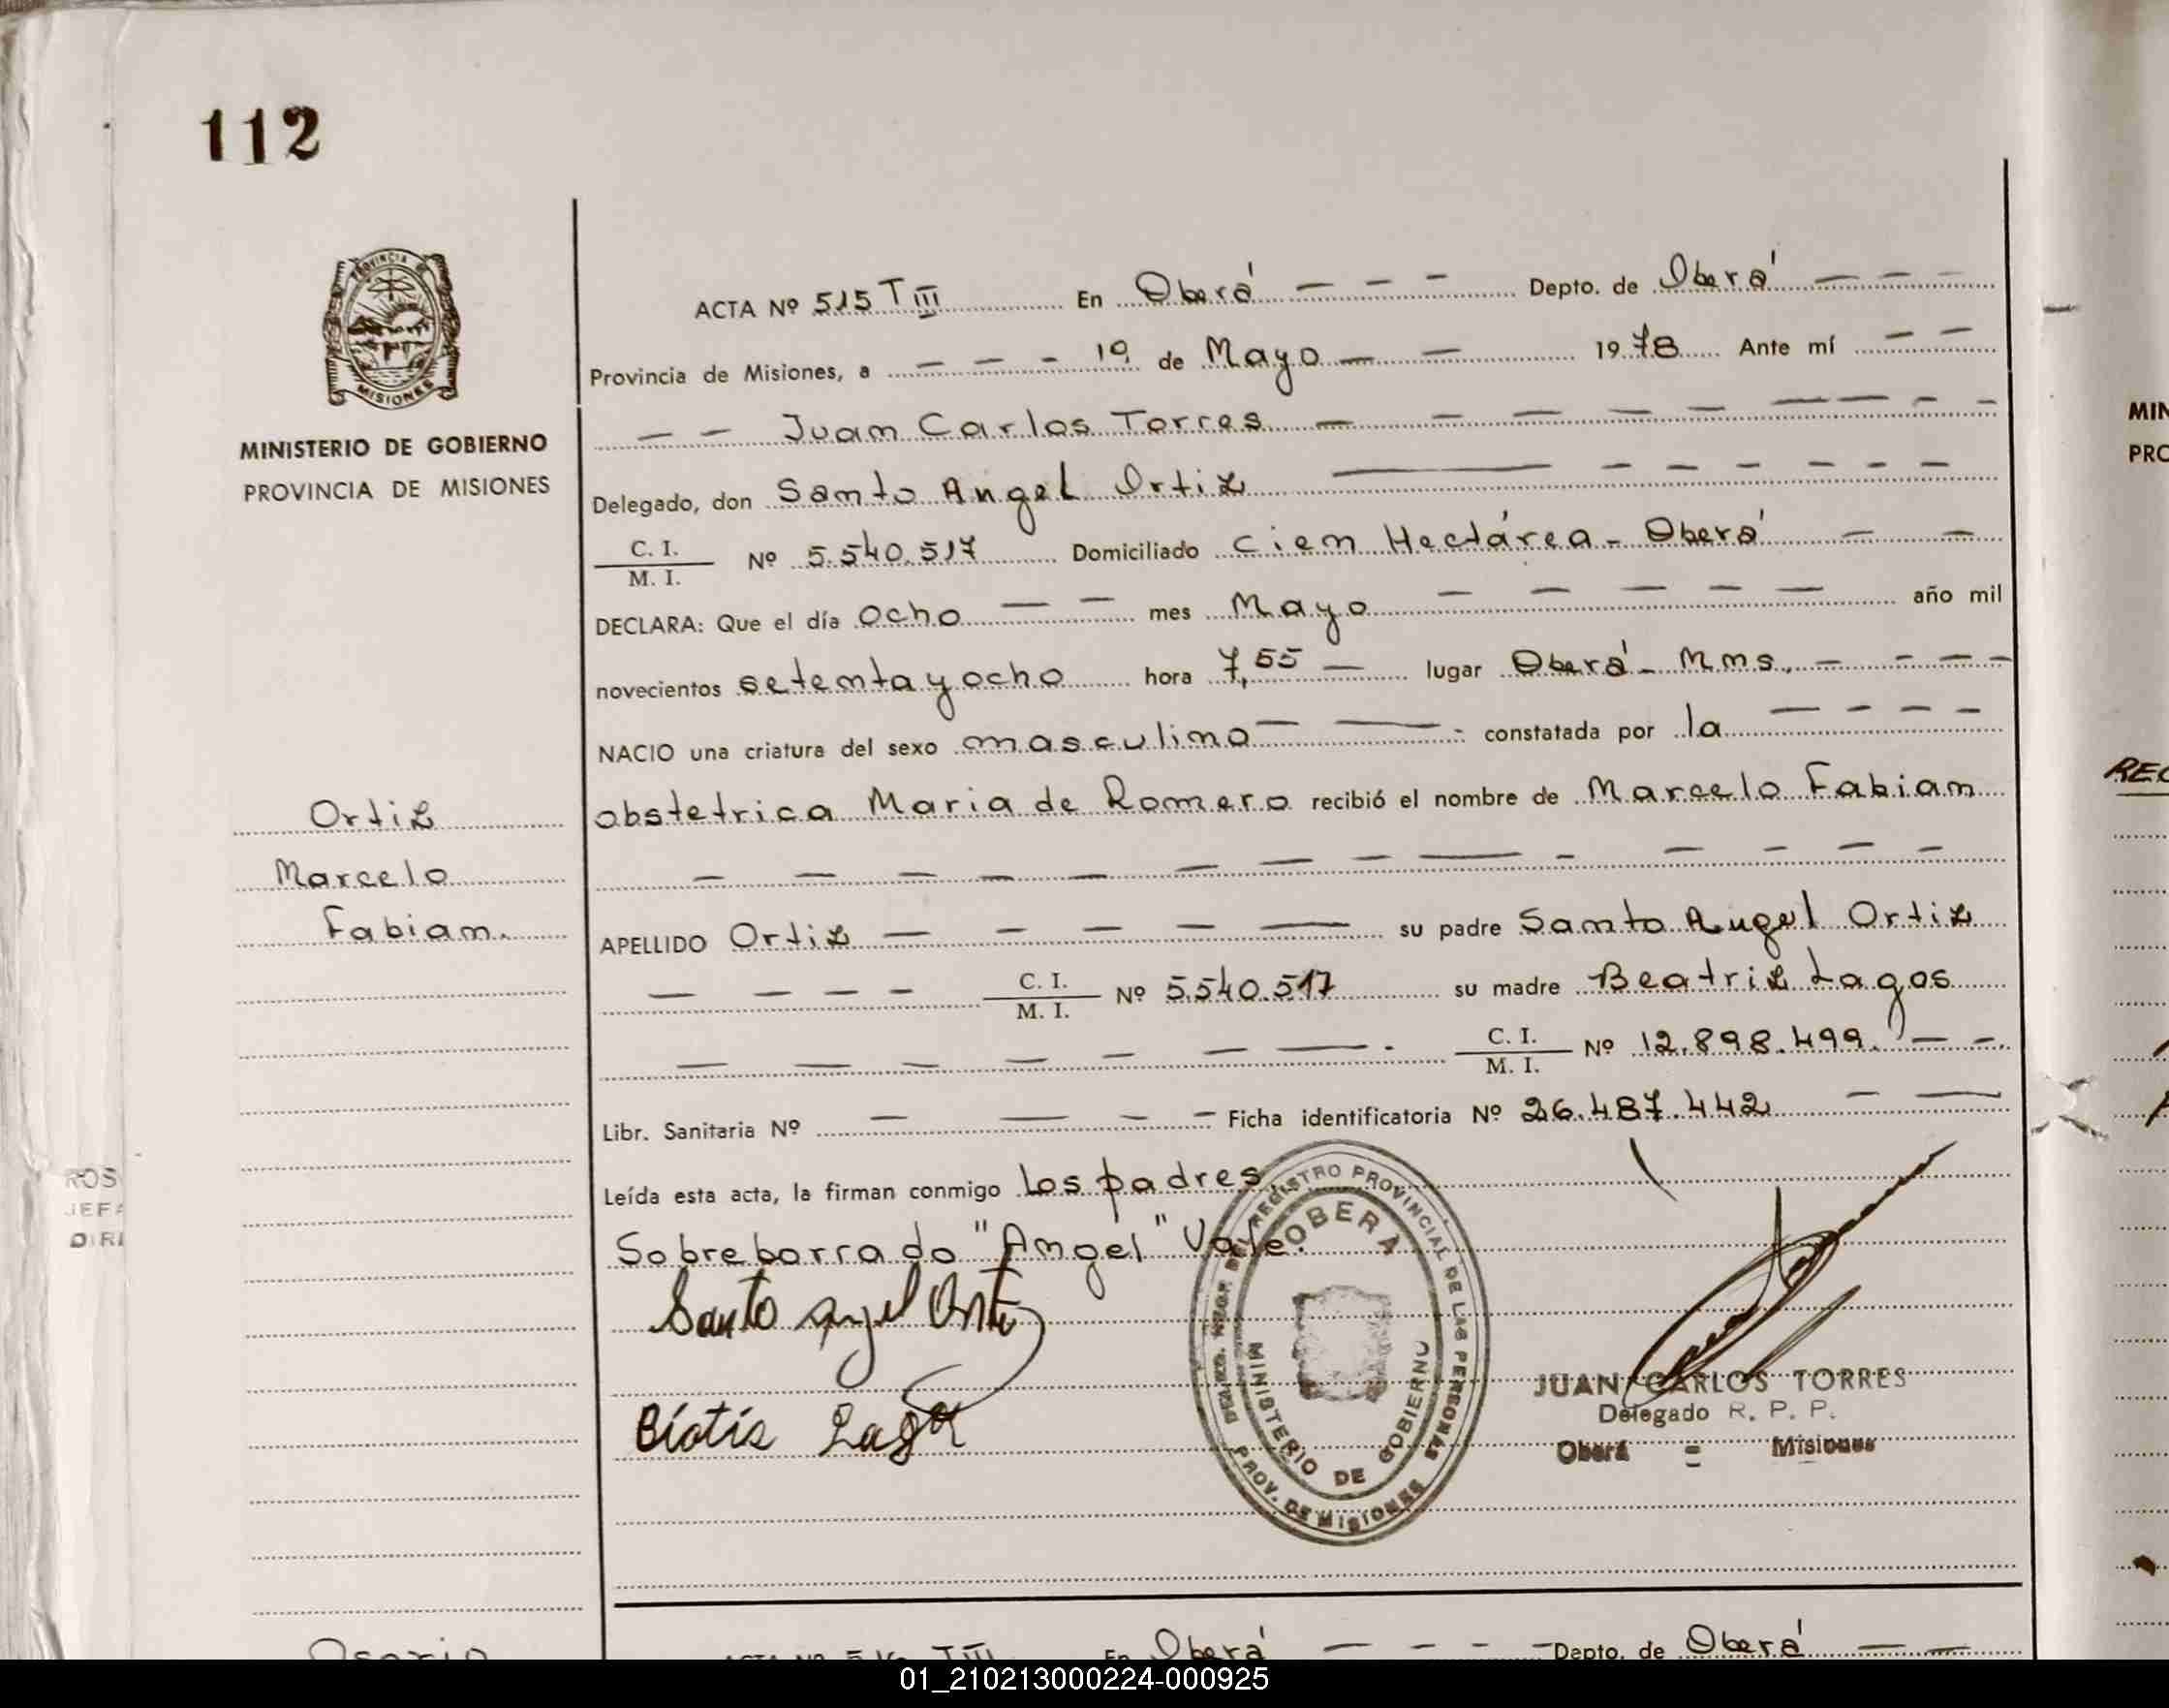 112
PROVINCIA DE
MISIONES
MINISTERIO DE GOBIERNO
PROVINCIA DE MISIONES
Ortiz
Marcelo
Fabian.
ACTA Nº 515 T III En Oberá — — — Depto. de Oberá — — —
Provincia de Misiones, a — — - 10 de Mayo — — 1978 Ante mí — —
— — Juan Carlos Torres — — — — — — — — —
Delegado, don Santo Angel Ortiz — — — — — — —
C. I.
M. I. Nº 5.540.517 Domiciliado Cien Hectárea - Oberá — —
DECLARA: Que el día ocho — — mes Mayo — — — — — año mil
novecientos setenta y ocho hora 7,55 — lugar Oberá - Mnes. — — — —
NACIO una criatura del sexo masculino — — constatada por la — — — —
obstetrica Maria de Romero recibió el nombre de Marcelo Fabian
— — — — — — — — — — — — — —
APELLIDO Ortiz — — — — — su padre Santo Angel Ortiz
— — — — C. I.
M. I. Nº 5.540.517 su madre Beatriz Lagos
— — — — — — — C. I.
M. I. Nº 12.898.499. — —
Libr. Sanitaria Nº — — — — Ficha identificatoria Nº 26.487.442 — —
Leída esta acta, la firman conmigo los padres
Sobre borrado "Angel" Vale.
Santo Angel Ortiz
Lagos
REGISTRO PROVINCIAL DE LAS PERSONAS
PROV. DE MISIONES
OBERA
MINISTERIO DE GOBIERNO
JUAN CARLOS TORRES
Delegado R. P. P.
Oberá = Misiones
ROS
JEFA
DIRE
MIN
PRO
REC
En Oberá — — — — Depto. de Oberá — —
01_210213000224-000925